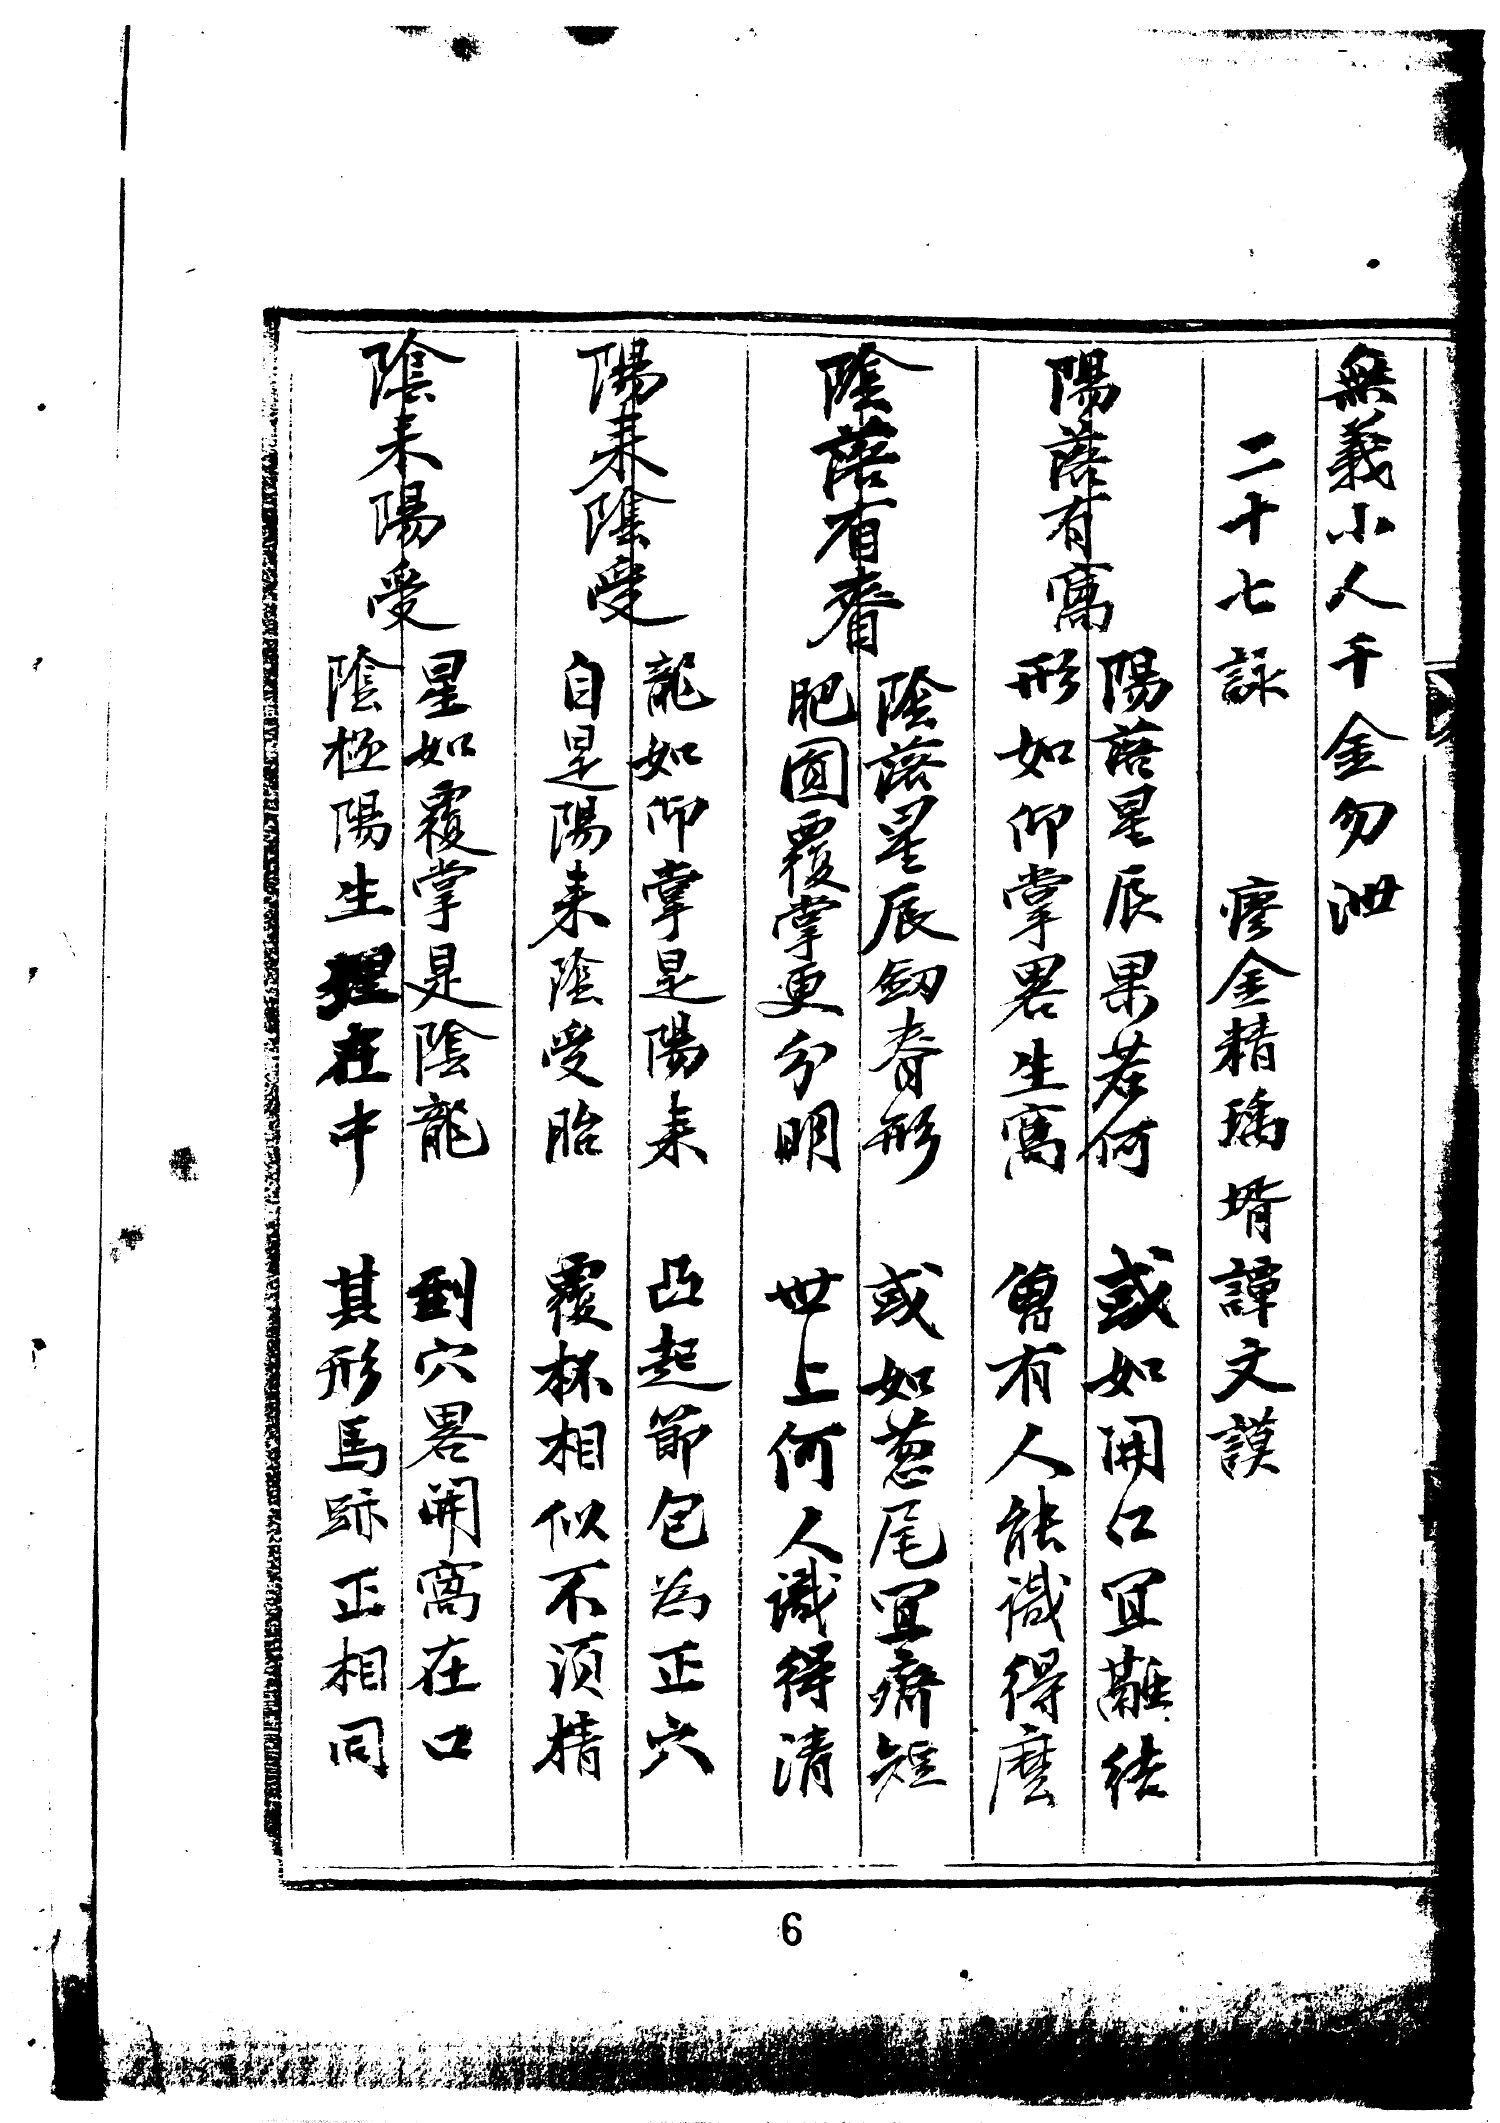 無義小人千金勿泄
二十七詠 廖金精瑀壻譚文謨
陽落有窩
陽落星辰果若何 或如開口宜難結
形如仰掌畧生窩 曾有人能識得麽
陰落有脊
陰落星辰劒脊形 或如葱尾宜齊短
肥圓覆掌更分明 世上何人識得清
陽来陰受
龍如仰掌是陽来 凸起節包為正穴
自是陽来陰受胎 覆杯相似不須精
陰来陽受
星如覆掌是陰龍 到穴畧開窩在口
陰極陽生理在中 其形馬跡正相同
6